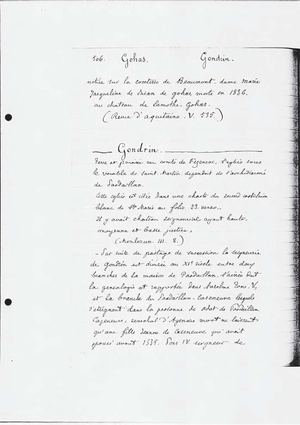 506. Gohas. Gondrin.
notice sur la comtesse de Beaumont, dame Marie
Jacqueline de de gohas morte en 1836.
au chateau de Lamothe. Gohas.
(Revue d'aquitaine. V. 535.)
Gondrin.
Terre et en comté de Fezensac, l'église sous
le vocable de Saint Martin dependait de l'archidiaconé
de Pardaillan.
Cette église est citée dans une charte du second cartulaire
blanc de Ste Marie au folio 23 verso.
Il y avait chateau seigneurial ayant haute,
moyenne et basse justice.
(Monlezun. III. 8.)
- Par suite de partage de succession la seigneurie
de Gondrin est divisée au XIe siècle entre deux
branches de la maison de Pardaillan. d'
la genealogie est rapportée dans tom. V,
et la branche de Pardaillan. Caseneuve laquelle
s'éteignit dans la personne de de Pardaillan
Caseneuve, senechal d'Agenois ne laissant
qu'une fille Jeanne de Caseneuve qui avait
épousé avant 1535. Pons IV seigneur de